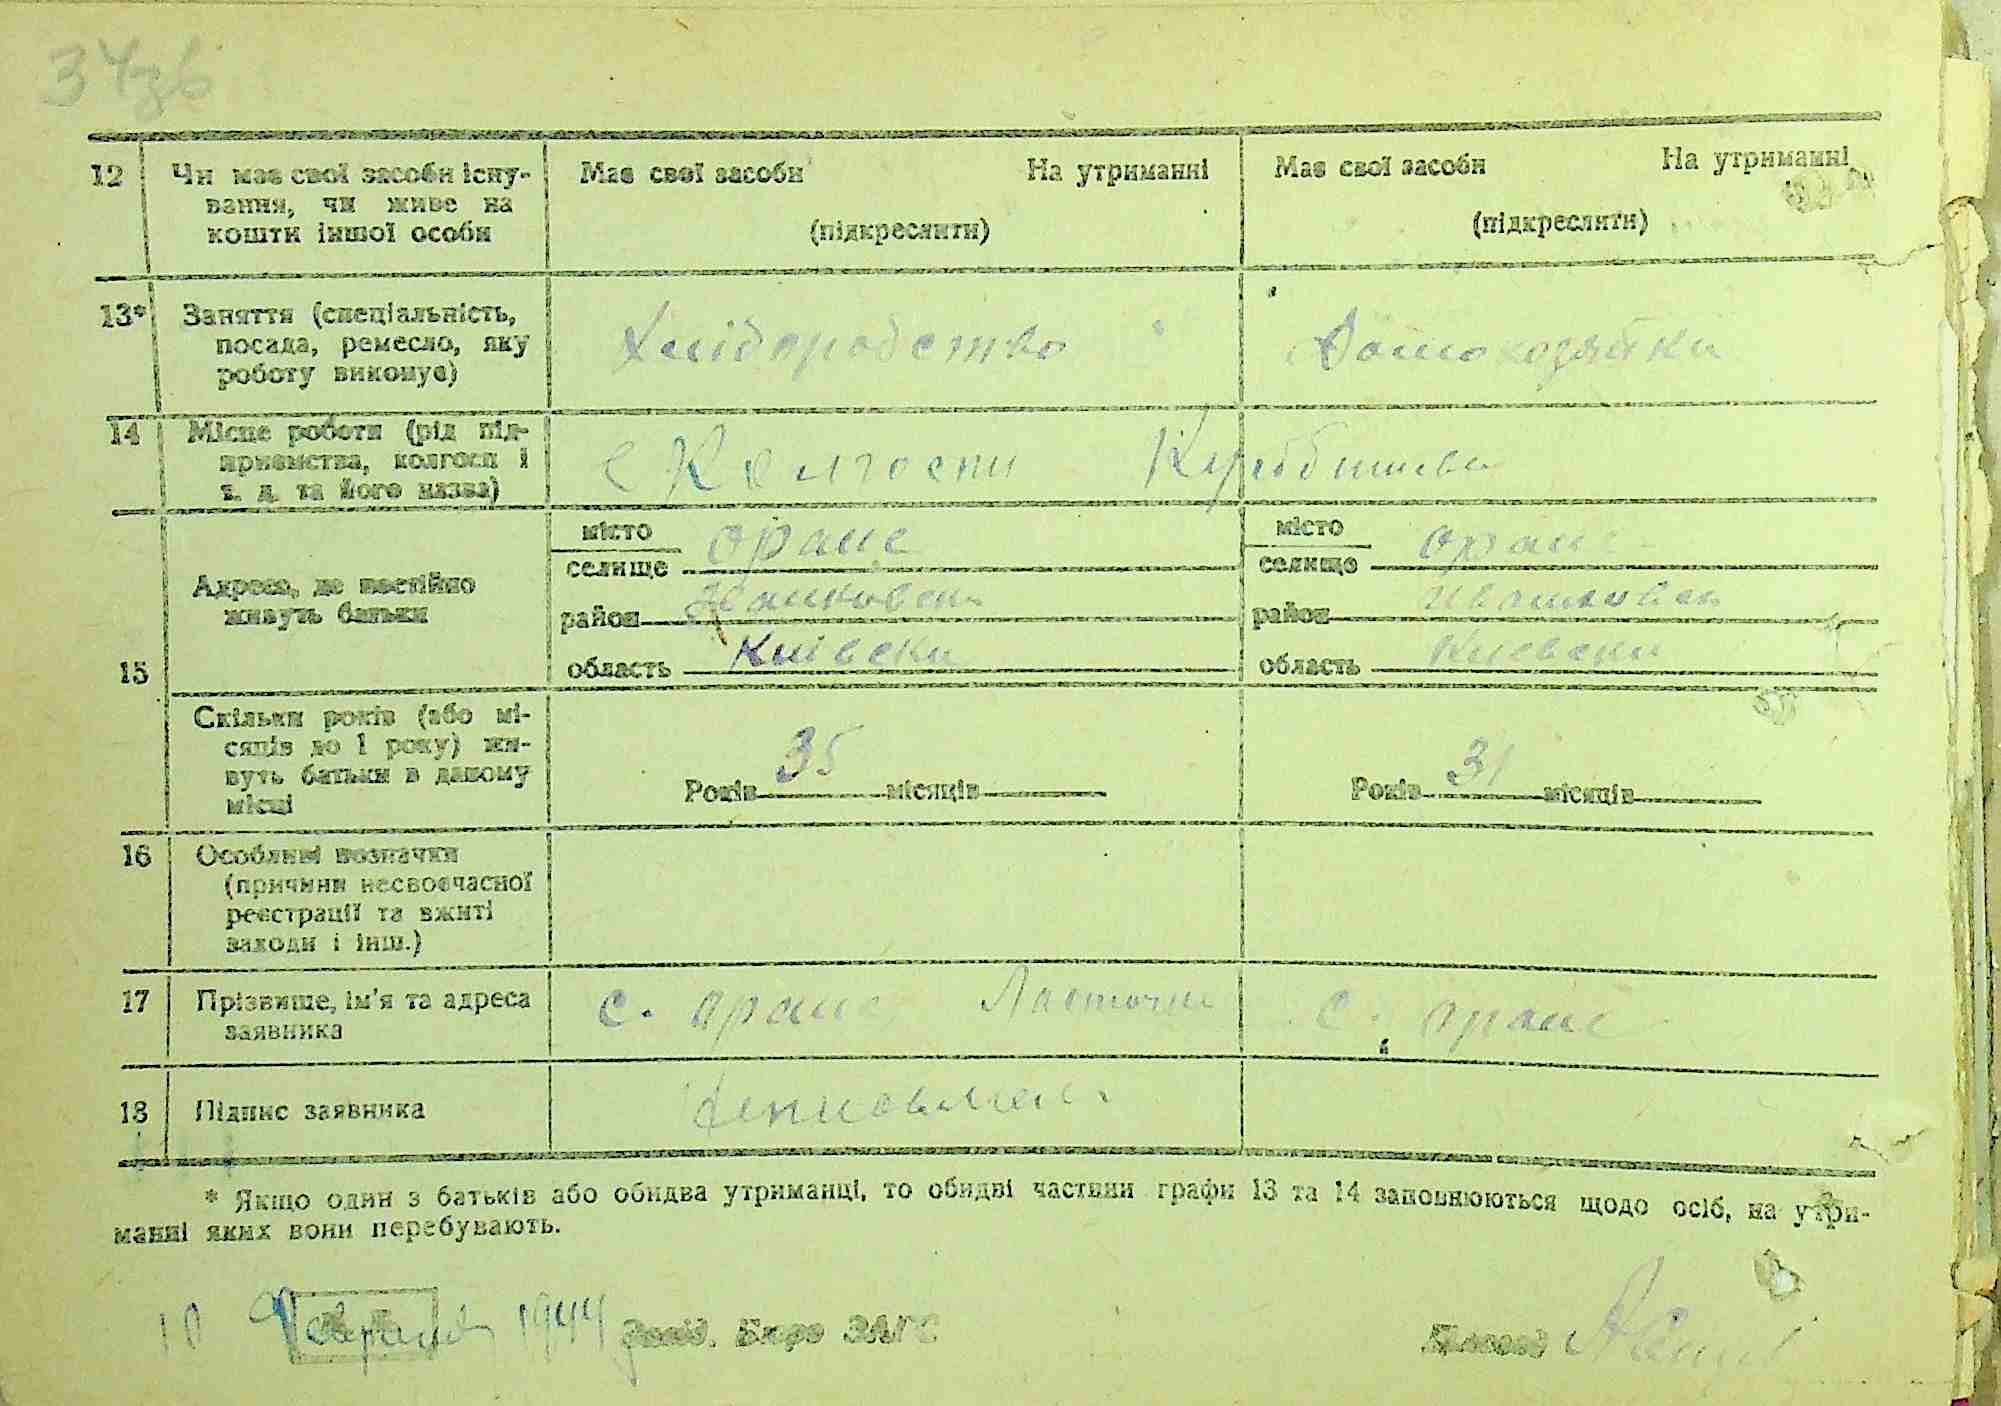 12 Чи має свої засоби існу-
вання, чи живе на
кошти іншої особи
Має свої засоби На утриманні
(підкреслити)
Має свої засоби На утриманні
(підкреслити)
13* Заняття (спеціальність,
посада, ремесло, яку
роботу виконує)
Хліборобство
Домохозяйка
14 Місце роботи (рід під-
приємства, колгосп і
т. д. та його назва)
Колгосп
15 Адреса, де постійно
живуть батьки
місто
селище Оране
район
область Київська
місто
селище Оране
район
область Киевська
Скільки років (або мі-
сяців до 1 року) жи-
вуть батьки в даному
місці
Років 35 місяців
Років 31 місяців
16 Особливі позначки
(причини несвоєчасної
реєстрації та вжиті
заходи і інш.)
17 Прізвище, ім'я та адреса
заявника
с. Оране
с. Оране
18 Підпис заявника
* Якщо один з батьків або обидва утриманці, то обидві частини графи 13 та 14 заповнюються щодо осіб, на утри-
манні яких вони перебувають.
10 1944 Завід. Бюро ЗАГС